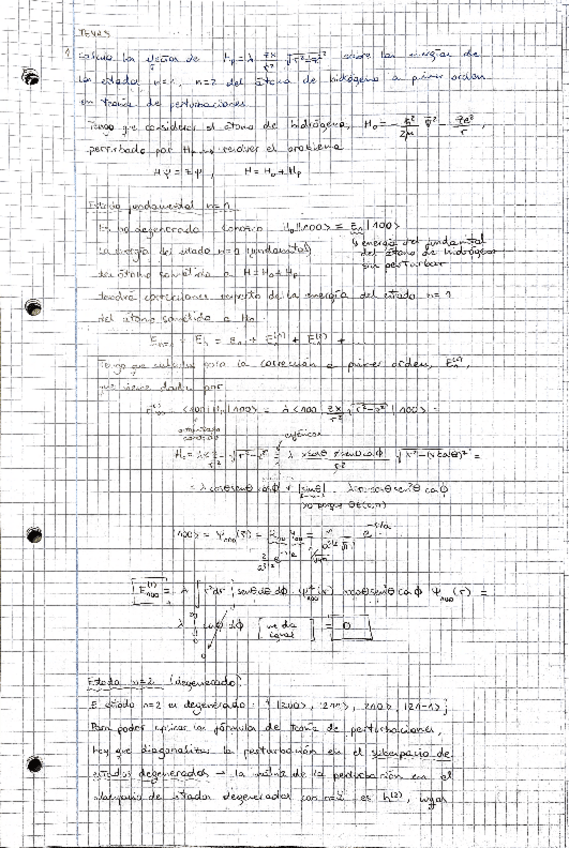 TEMA 5
1 Calcula los efectos de H_p = λ zx/r² √(r²-z²) sobre las energías de
los estados n=1, n=2 del átomo de hidrógeno a primer orden
en teoría de perturbaciones
Tengo que considerar el átomo de hidrógeno, H_0 = -ħ²/2μ ∇² - ze²/r ,
perturbado por H_p → resolver el problema
HΨ = EΨ , H = H_0 + H_p
Estado fundamental n=1
Es no degenerado conozco H_0|100> = E_n|100>
↳ energía del fundamental
La energía del estado n=1 (fundamental)
del átomo de hidrógeno
sin perturbar
del átomo sometido a H = H_0 + H_p
tendrá correcciones respecto de la energía del estado n=1
del átomo sometido a H_0
E_n = E_n^(1) + E_n^(2) +
Tengo que calcular para la corrección a primer orden, E_n^(1),
que viene dada por
<100|H_p|100> = λ <100| zx/r² √(r²-z²) |100> =
esféricas
= λ cosθ senθ cosϕ r |senθ| = λ r cosθ sen²θ cosϕ
|100> = Ψ_100(r) = R_10 Y_00 =
E_100^(1) = λ ∫ r² dr senθ dθ dϕ Ψ*_100(r) r cosθ sen²θ cosϕ Ψ_100(r) =
λ ∫ cosϕ dϕ [me da igual] = 0
Estado n=2 (degenerado)
El estado n=2 es degenerado: {|200>, |211>, |210>, |21-1>}
Para poder aplicar la fórmula de teoría de perturbaciones,
hay que diagonalizar la perturbación en el subespacio de
estados degenerados → la matriz de la perturbación en el
subespacio de estados degenerados con n=2 es h^(2), cuyas